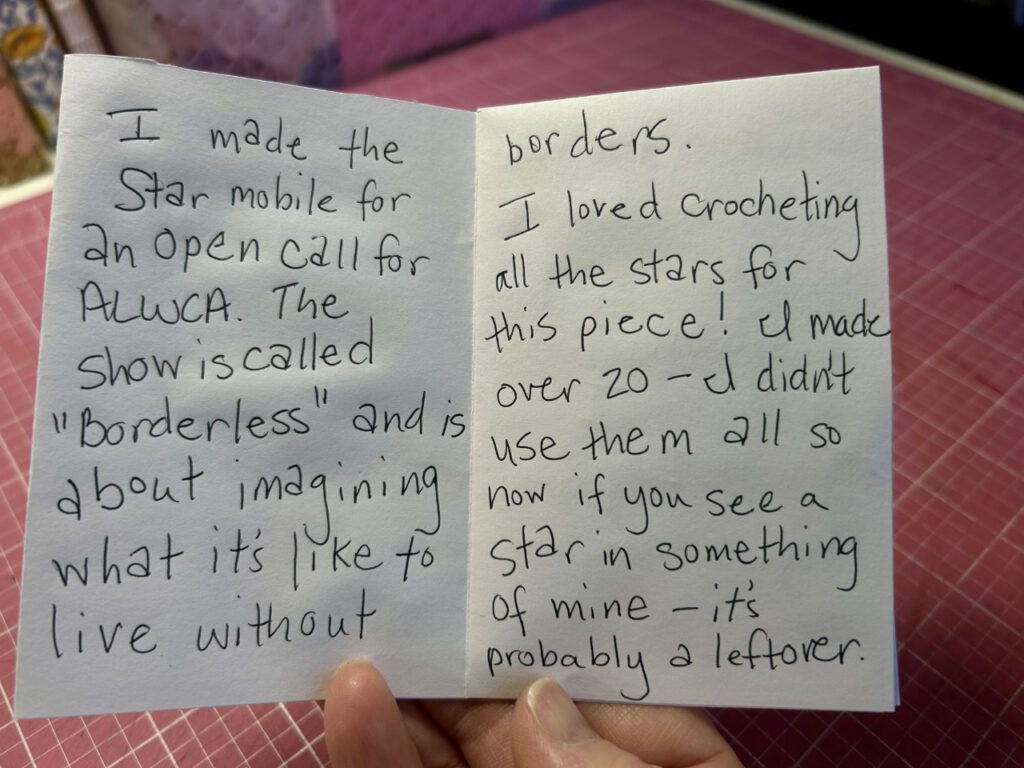 I made the
Star mobile for
an open call for
ALWCA. The
show is called
"Borderless" and is
about imagining
what it's like to
live without
borders.
I loved crocheting
all the stars for
this piece! I made
over 20 - I didn't
use them all so
now if you see a
star in something
of mine - it's
probably a leftover.